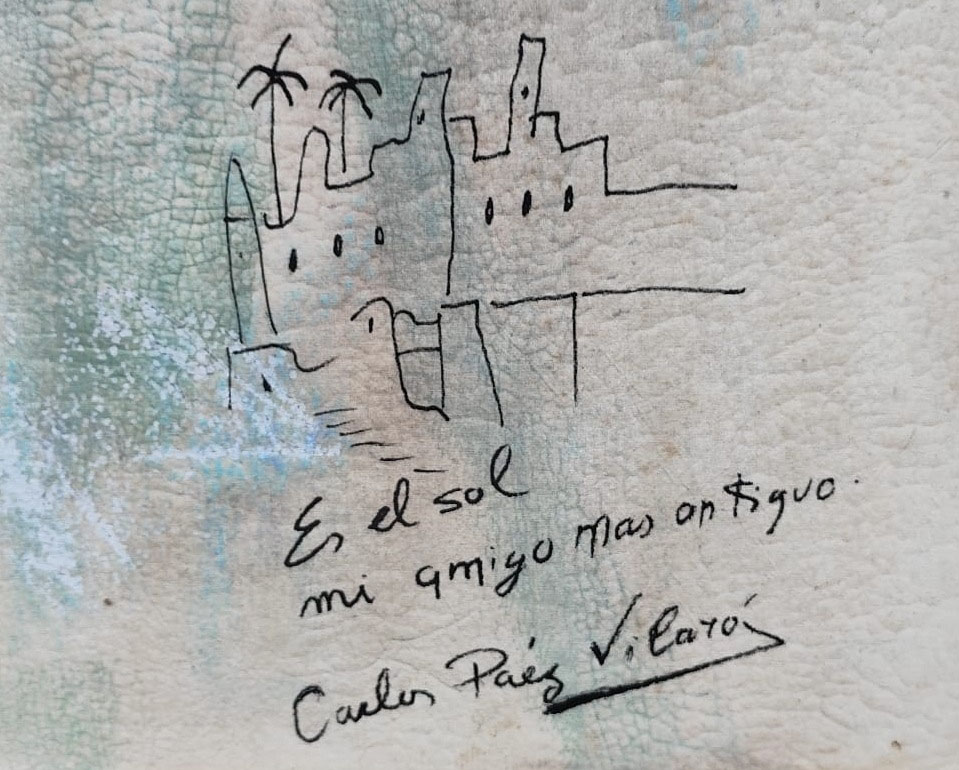 Es el sol
mi amigo mas antiguo.
Carlos Páez Vilaró